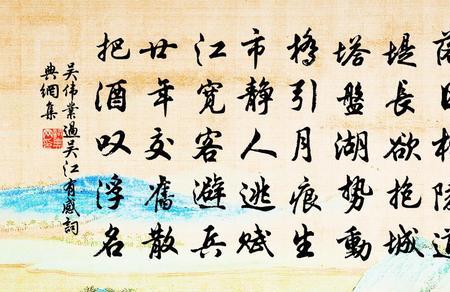 落日松陵道
堤長欲抱城
塔盤湖勢動
橋引月痕生
市靜人逃賦
江寬客避兵
廿年交舊散
把酒叹浮名
吴伟業過吴江有感詞
典網集